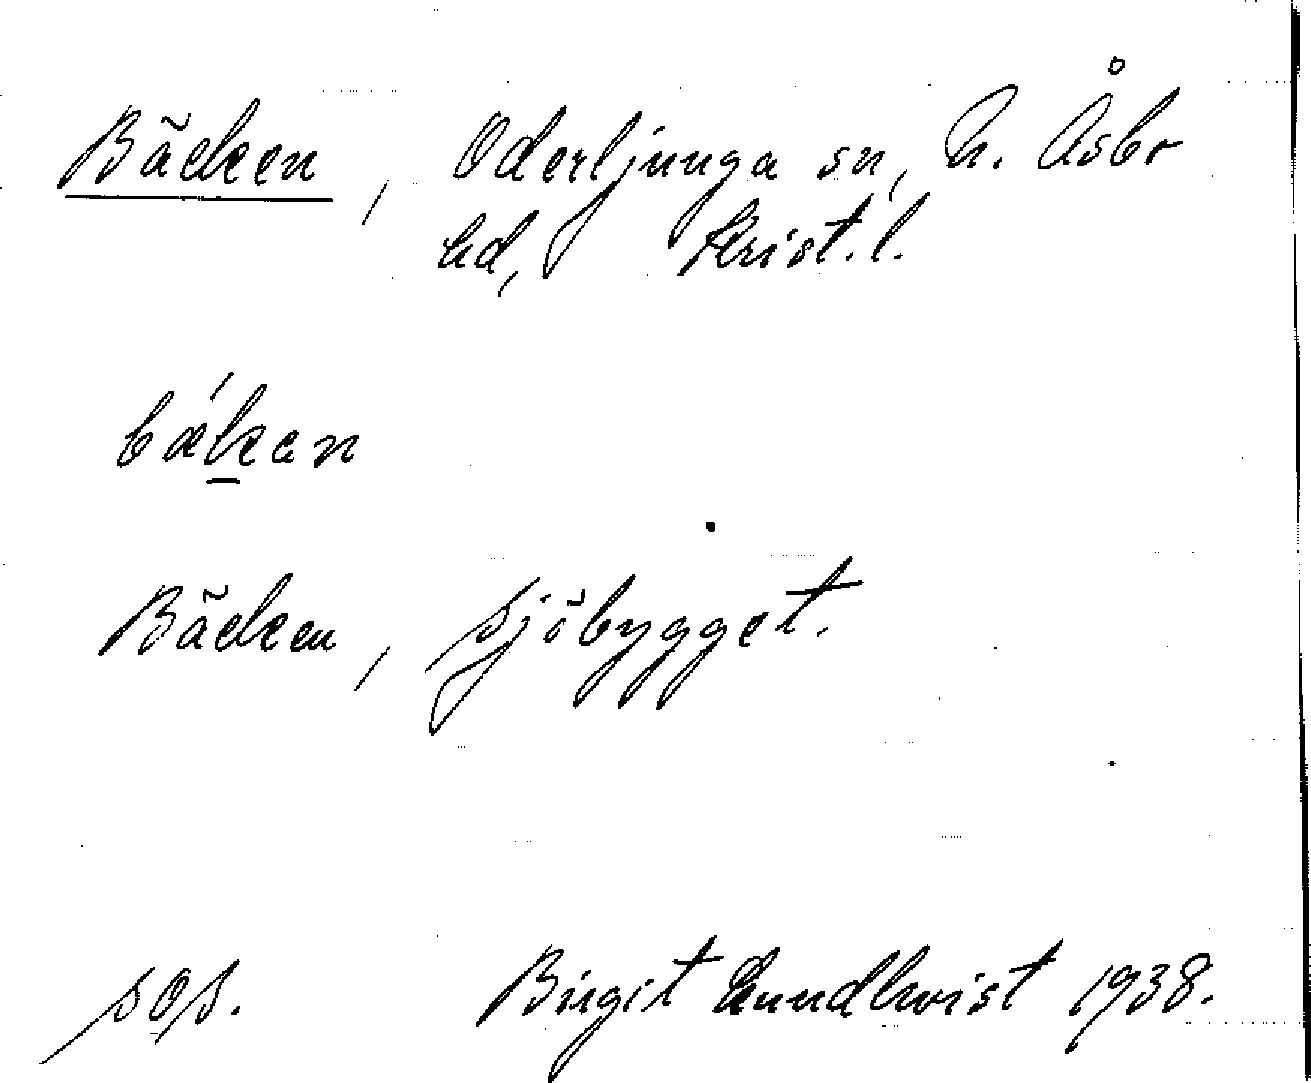 Bäcken, Oderljunga sn, N. Åsbo
hd, Krist. l.
bæ´k̲an
Bäcken, sjöbygget.
sǫs. Birgit Lundkvist 1938.